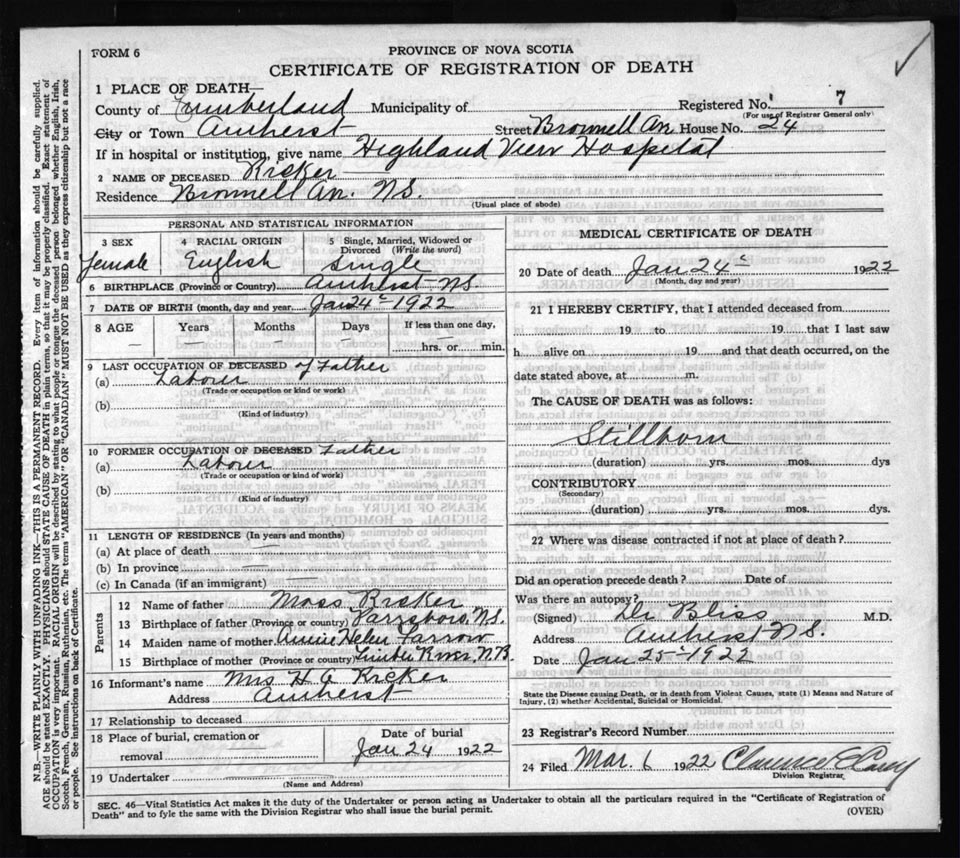 FORM 6
PROVINCE OF NOVA SCOTIA
CERTIFICATE OF REGISTRATION OF DEATH
1 PLACE OF DEATH—
County of Cumberland Municipality of Registered No. 7
(For use of Registrar General only)
City or Town Amherst Street Bronnell Av. House No. 24
If in hospital or institution, give name Highland View Hospital
2 NAME OF DECEASED Ricker
Residence Bronnell Av. N.S.
(Usual place of abode)
PERSONAL AND STATISTICAL INFORMATION
3 SEX 4 RACIAL ORIGIN 5 Single, Married, Widowed or Divorced (Write the word)
Female English Single
6 BIRTHPLACE (Province or Country) Amherst N.S.
7 DATE OF BIRTH (month, day and year) Jan 24 1922
8 AGE Years Months Days If less than one day,
— — hrs. or min.
9 LAST OCCUPATION OF DECEASED of Father
(a) Laborer
(Trade or occupation or kind or work)
(b)
(Kind of industry)
10 FORMER OCCUPATION OF DECEASED Father
(a) Laborer
(Trade or occupation or kind or work)
(b)
(Kind of industry)
11 LENGTH OF RESIDENCE (In years and months)
(a) At place of death —
(b) In province —
(c) In Canada (if an immigrant) —
Parents
12 Name of father Moss Ricker
13 Birthplace of father (Province or country) Parrsboro, N.S.
14 Maiden name of mother Annie Helen Farrow
15 Birthplace of mother (Province or country) River, N.B.
16 Informant's name Mrs H Ricker
Address Amherst
17 Relationship to deceased
18 Place of burial, cremation or removal Date of burial
Jan 24 1922
19 Undertaker
(Name and Address)
MEDICAL CERTIFICATE OF DEATH
20 Date of death Jan 24 1922
(Month, day and year)
21 I HEREBY CERTIFY, that I attended deceased from
19 to 19 that I last saw
h alive on 19 and that death occurred, on the
date stated above, at m.
The CAUSE OF DEATH was as follows:
Stillborn
(duration) yrs. mos. dys
CONTRIBUTORY
(Secondary)
(duration) yrs. mos. dys.
22 Where was disease contracted if not at place of death?
Did an operation precede death? Date of
Was there an autopsy?
(Signed) Dr Bliss M.D.
Address Amherst N.S.
Date Jan 25 1922
State the Disease causing Death, or in death from Violent Causes, state (1) Means and Nature of
Injury, (2) whether Accidental, Suicidal or Homicidal.
23 Registrar's Record Number
24 Filed Mar. 6 1922 Clarence
Division Registrar
SEC. 46—Vital Statistics Act makes it the duty of the Undertaker or person acting as Undertaker to obtain all the particulars required in the "Certificate of Registration of
Death" and to fyle the same with the Division Registrar who shall issue the burial permit. (OVER)
N.B.—WRITE PLAINLY WITH UNFADING INK—THIS IS A PERMANENT RECORD. Every item of information should be carefully supplied.
AGE should be stated EXACTLY. PHYSICIANS should STATE CAUSE OF DEATH in plain terms, so that it may be properly classified. Exact statement of
OCCUPATION is very important. RACIAL ORIGIN will be described by stating to what people or tongue the deceased person belonged whether English, Irish,
Scotch, French, German, Russian, Ruthenian, etc. The terms "AMERICAN" OR "CANADIAN" MUST NOT BE USED as they express citizenship but not a race
or people. See instructions on back of Certificate.